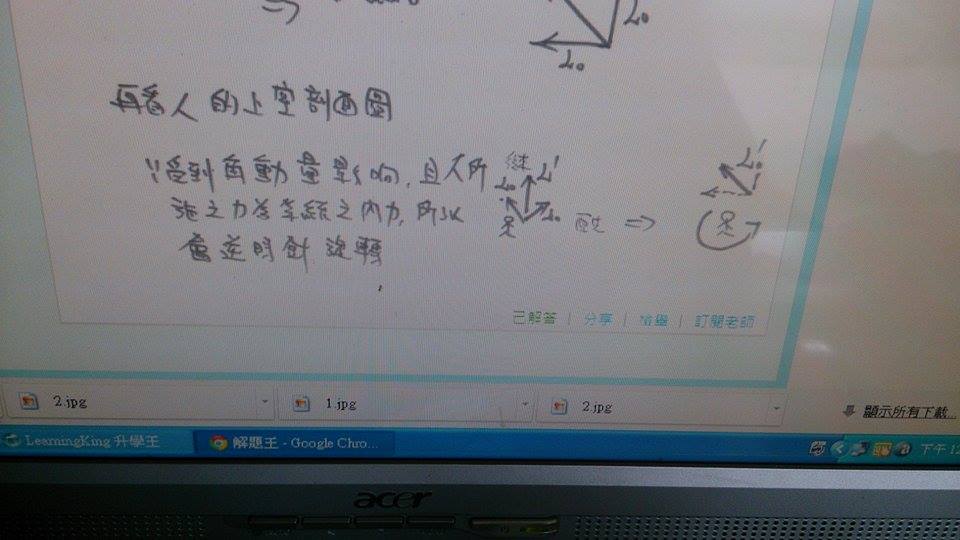 ⇒
L₀
L₀
再看人的上空剖面圖
∵受到角動量影响,且人所
施之力為系統之內力,所以
會逆時針旋轉
L₀ L' L₀
⇒
L₀'
已解答 | 分享 | 檢舉 | 訂閱老師
2.jpg 1.jpg 2.jpg 顯示所有下載...
LearningKing 升學王 解題王 - Google Chro... 下午 12
acer